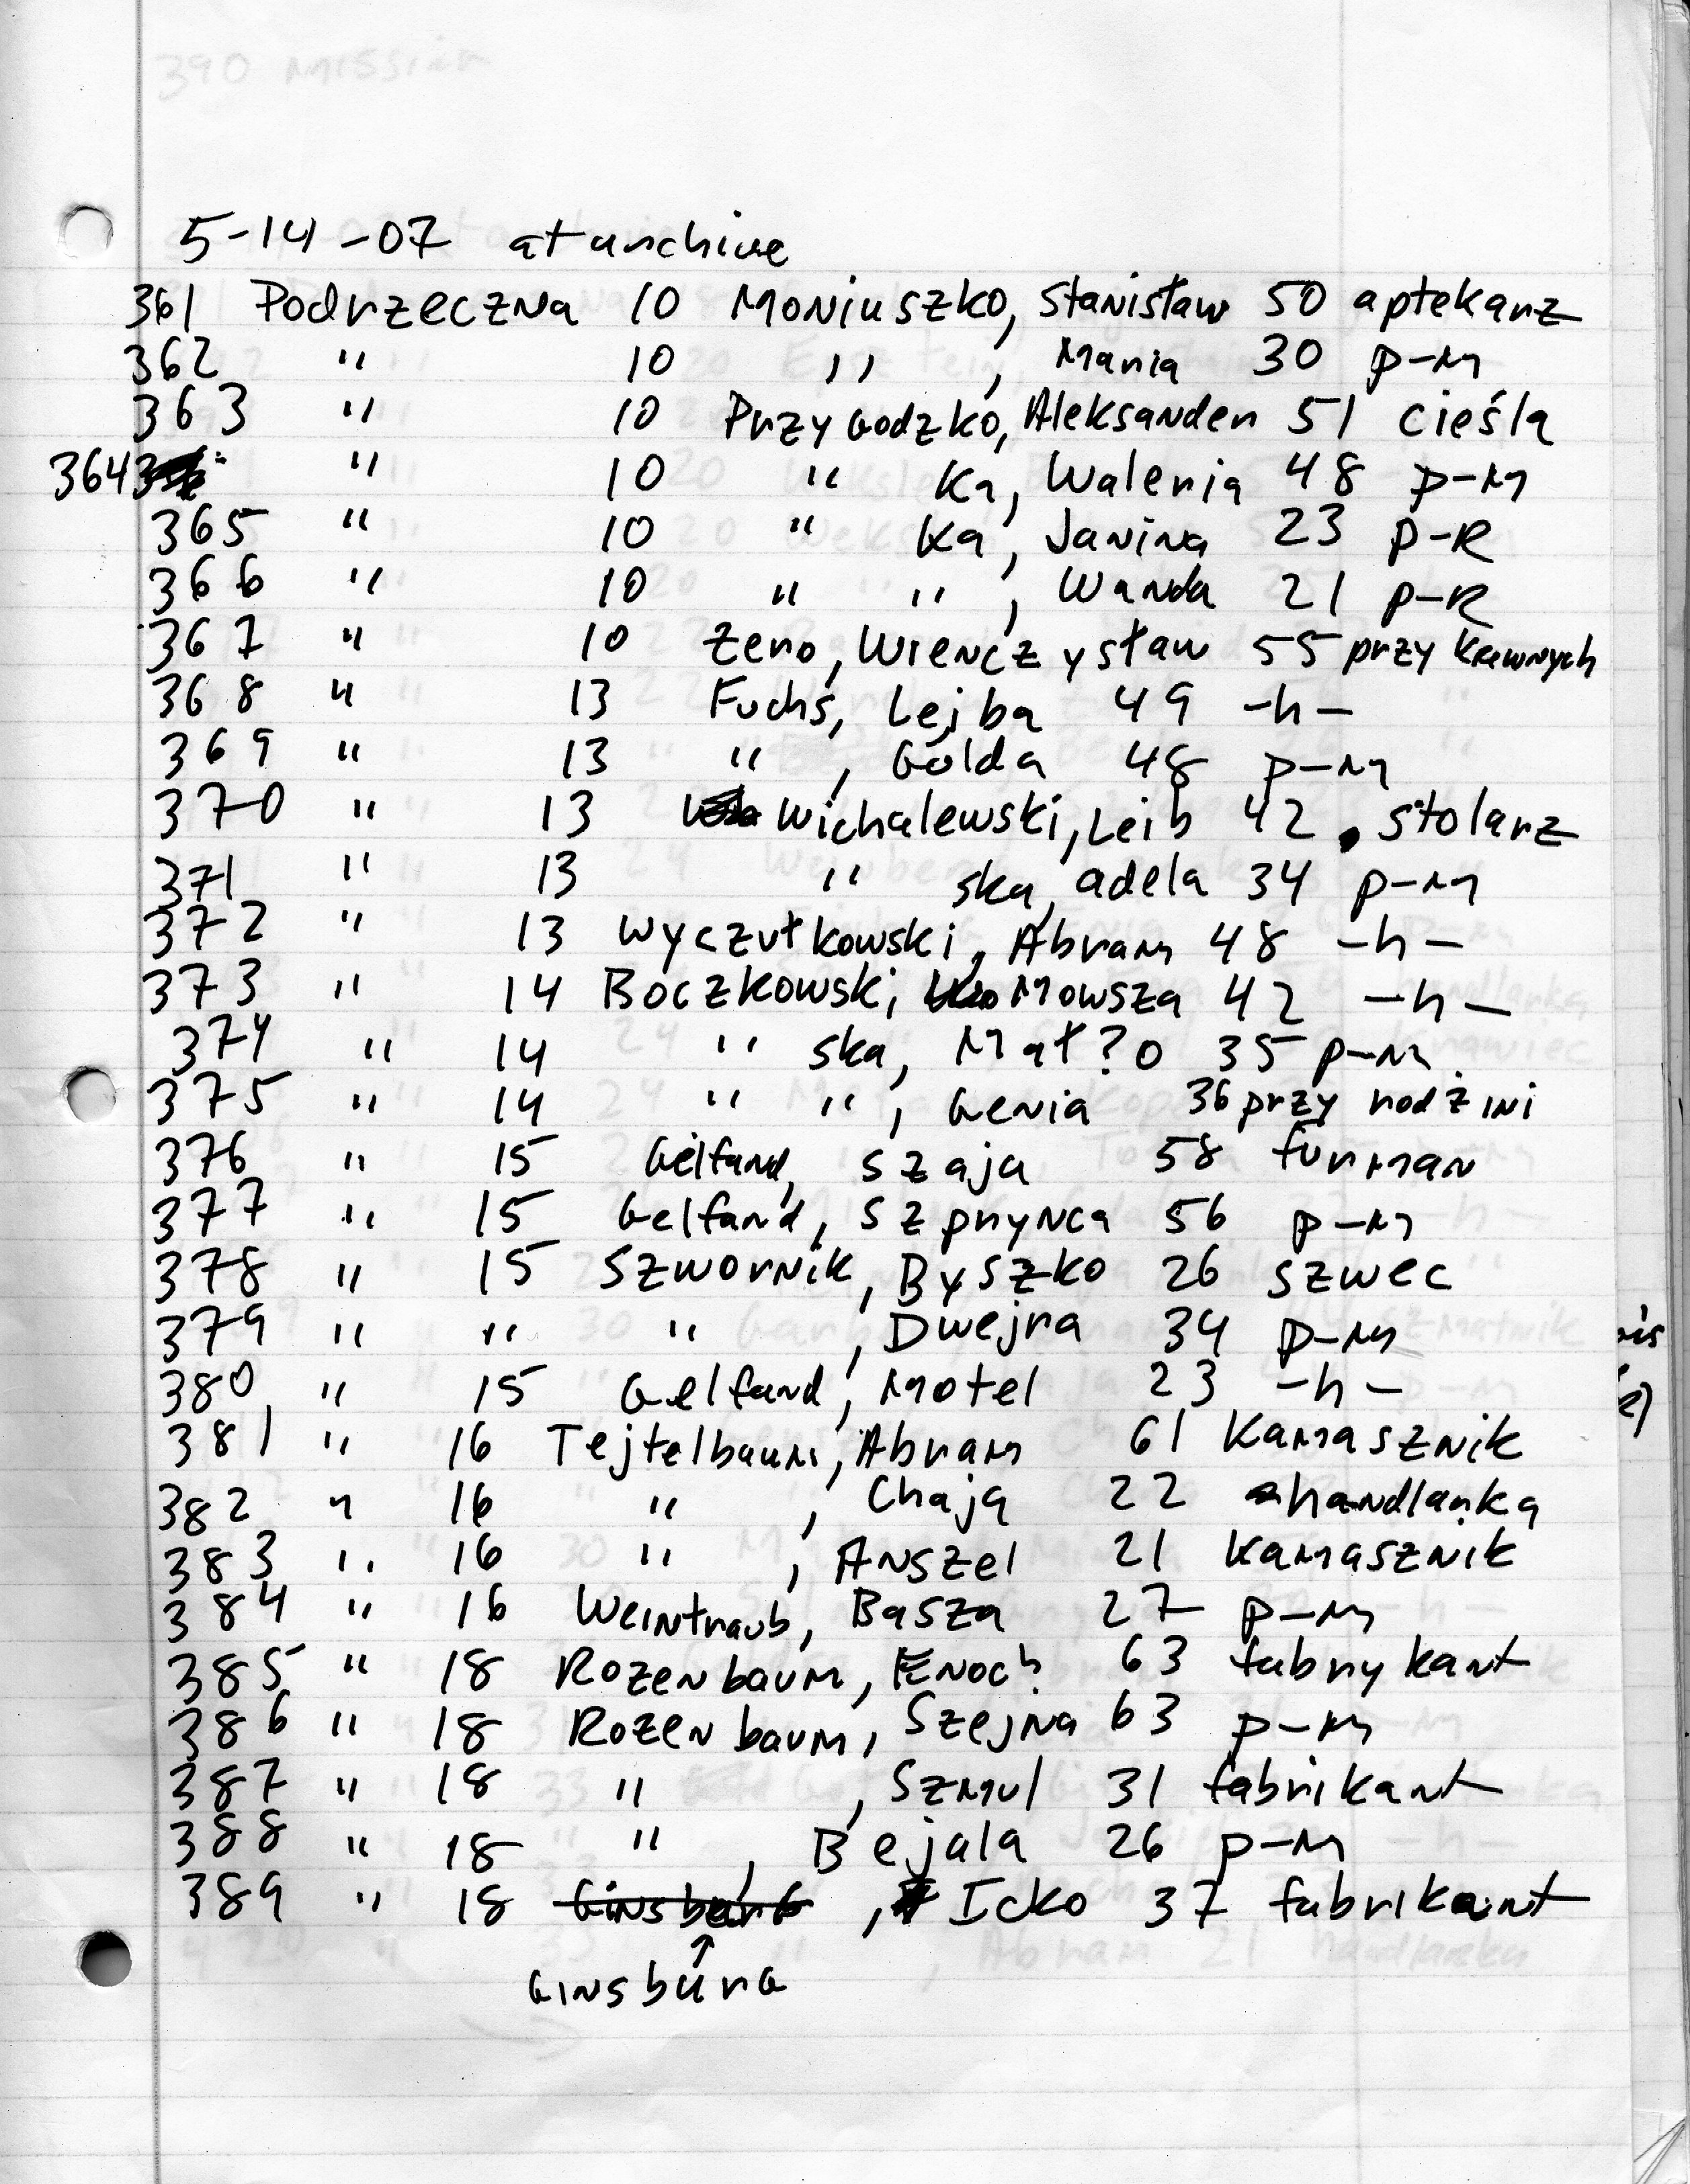 5-14-07 at archive
361 Podrzeczna 10 Moniuszko, Stanisław 50 aptekarz
362 " 10 " , Maria 30 p-m
363 " 10 Przygodzko, Aleksander 51 cieśla
364 " 10 " Ka, Waleria 48 p-m
365 " 10 " Ka, Janina 23 p-R
366 " 10 " " , Wanda 21 p-R
367 " 10 Zeno, Wienczysław 55 przy krewnych
368 " 13 Fuchs, Lejba 49 -h-
369 " 13 " , Golda 48 p-m
370 " 13 Wichalewski, Leib 42 stolarz
371 " 13 " ska, adela 34 p-m
372 " 13 Wyczułkowski, Abram 48 -h-
373 " 14 Boczkowski, Mowsza 42 -h-
374 " 14 " ska, Mał?o 35 p-m
375 " 14 " " , Genia 36 przy rodzini
376 " 15 Gelfand, Szaja 58 furman
377 " 15 Gelfand, Szprynca 56 p-m
378 " 15 Szwornik, Byszko 26 szwec
379 " " " , Dwejra 34 p-m
380 " 15 Gelfand, Motel 23 -h-
381 " 16 Tejtelbaum, Abram 61 Kamasznik
382 " 16 " , Chaja 22 handlarka
383 " 16 " , Anszel 21 Kamasznik
384 " 16 Weintraub, Basza 27 p-m
385 " 18 Rozenbaum, Enoch 63 fabrykant
386 " 18 Rozenbaum, Szejna 63 p-m
387 " 18 " , Szmul 31 fabrikant
388 " 18 " , Bejala 26 p-m
389 " 18 Ginsburg , Icko 37 fabrikant
Ginsburg